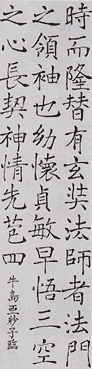 時而隆替有玄奘法師者法門
之領袖也幼懷貞敏早悟三空
之心長契神情先苞四
牛島亜紗子臨